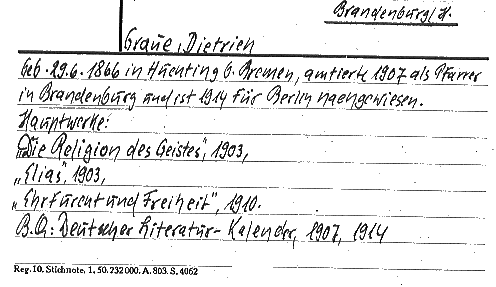 Brandenburg/H.
Graue, Dietrich
Geb. 29.6. 1866 in Huchting b. Bremen, amtierte 1907 als Pfarrer
in Brandenburg und ist 1914 für Berlin nachgewiesen.
Hauptwerke:
„Die Religion des Geistes", 1903,
„Elias", 1903,
„Ehrfurcht und Freiheit", 1910.
B.Q.: Deutscher Literatur-Kalender, 1907, 1914
Reg. 10. Stichnote, 1. 50. 232 000. A. 803. S. 4062